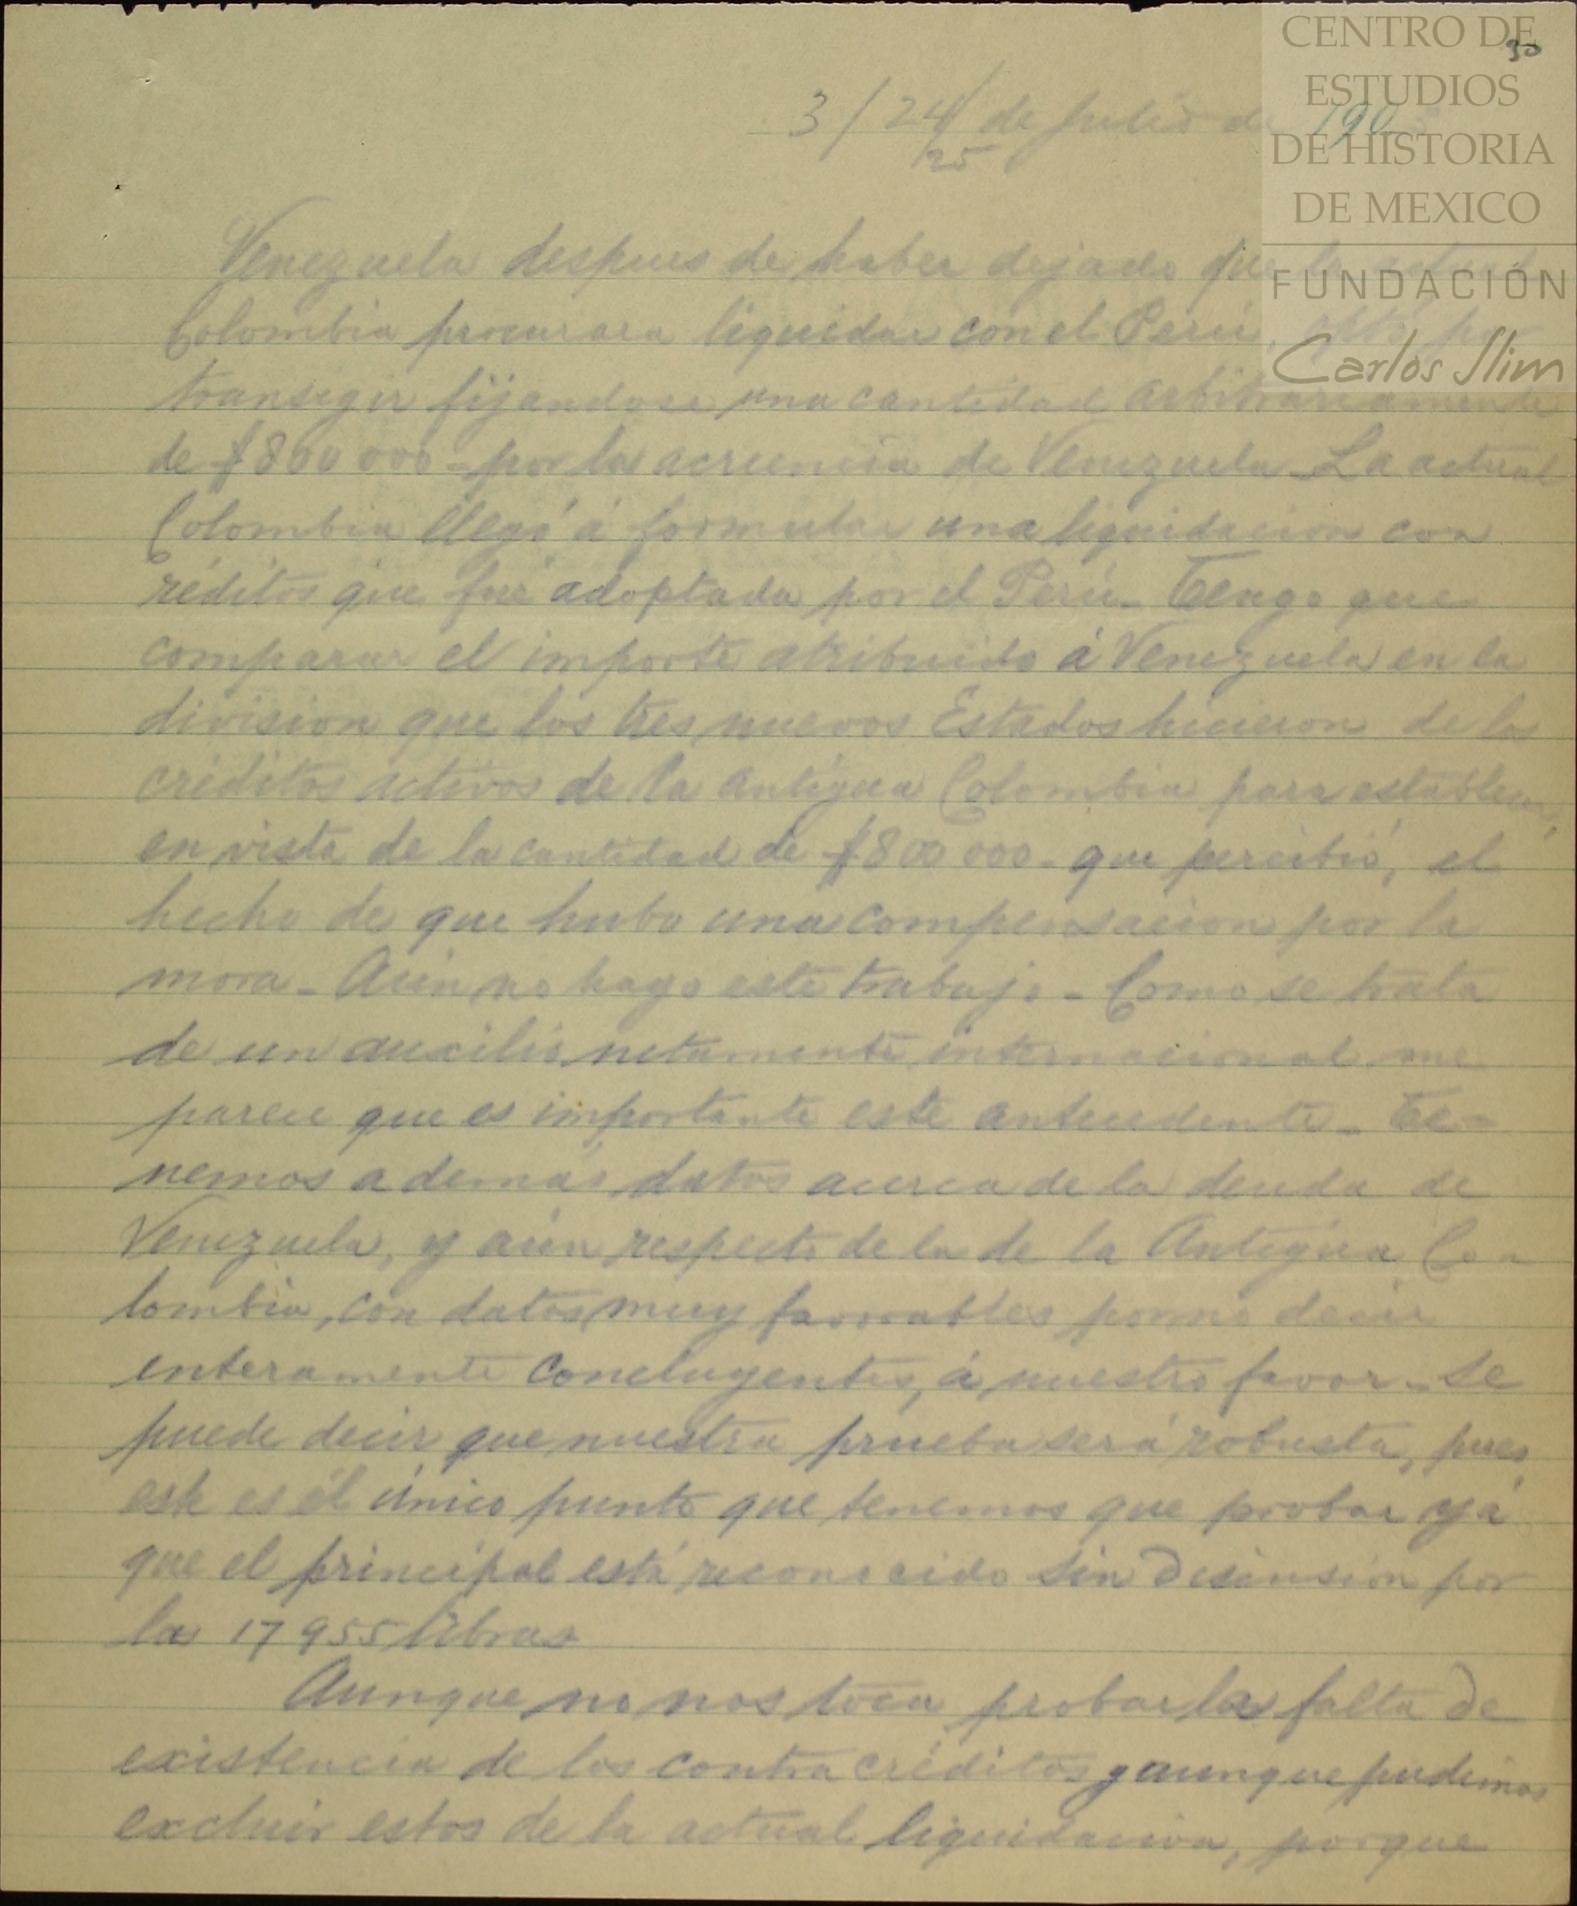 CENTRO DE
30
ESTUDIOS
DE HISTORIA
DE MEXICO
FUNDACIÓN
Carlos Slim
3/24/ de Julio de 190
25
Venezuela despues de haber dejado que la actual
Colombia procurara liquidar con el Perú, optó por
transigir fijandose una cantidad arbitrariamente
de $800 000 - por la acreencia de Venezuela - La actual
Colombia llegó á formular una liquidacion con
réditos que fué adoptada por el Perú - Tengo que
comparar el importe atribuido á Venezuela en la
division que los tres nuevos Estados hicieron de los
créditos activos de la Antigua Colombia para establecer,
en vista de la cantidad de $800 000 - que percibió, el
hecho de que hubo una compensacion por la
mora - Aún no hago este trabajo - Como se trata
de un auxilio netamente internacional me
parece que es importante este antecedente - Te-
nemos además datos acerca de la deuda de
Venezuela, y aún respecto de la de la Antigua Co-
lombia, con datos muy favorables por no decir
enteramente concluyentes, á nuestro favor - Se
puede decir que nuestra prueba será robusta, pues
este es él único punto que tenemos que probar yá
que el principal está reconocido sin discusión por
la 17 955 libras
Aunque no nos toca probar la falta de
existencia de los contra créditos y aunque pudimos
excluir estos de la actual liquidacion, porque